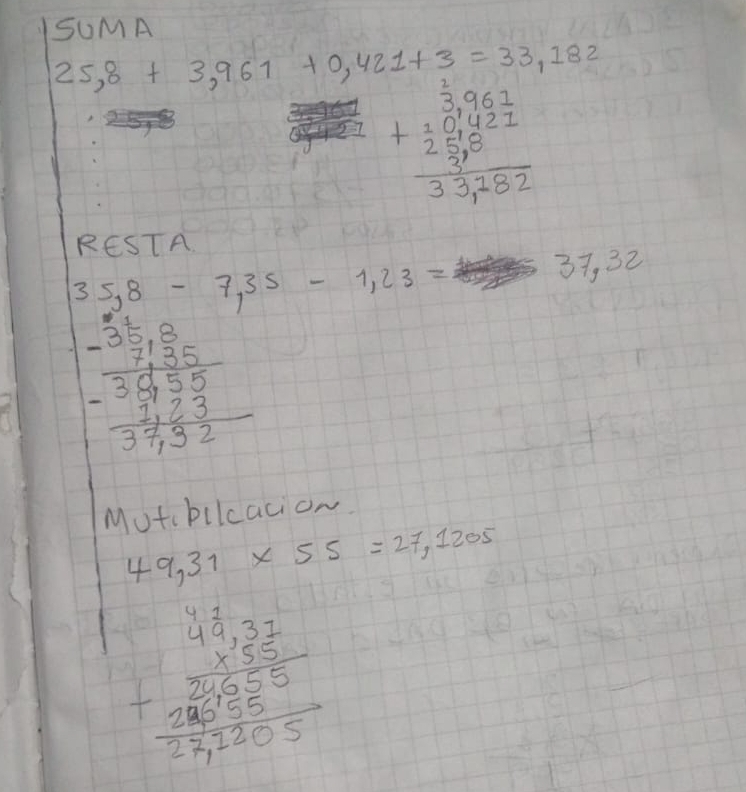 SUMA
25,8 + 3,961 + 0,421 + 3 = 33,182
2
3,961
+ 20,421
25,8
3
33,182
RESTA
35,8 - 7,35 - 1,23 = 37,32
- 35,8
7,35
- 38,55
1,23
37,32
Mutibilcacion.
49,31 x 55 = 27,1205
4 1
49,31
x 55
+ 24,655
24655
27,1205